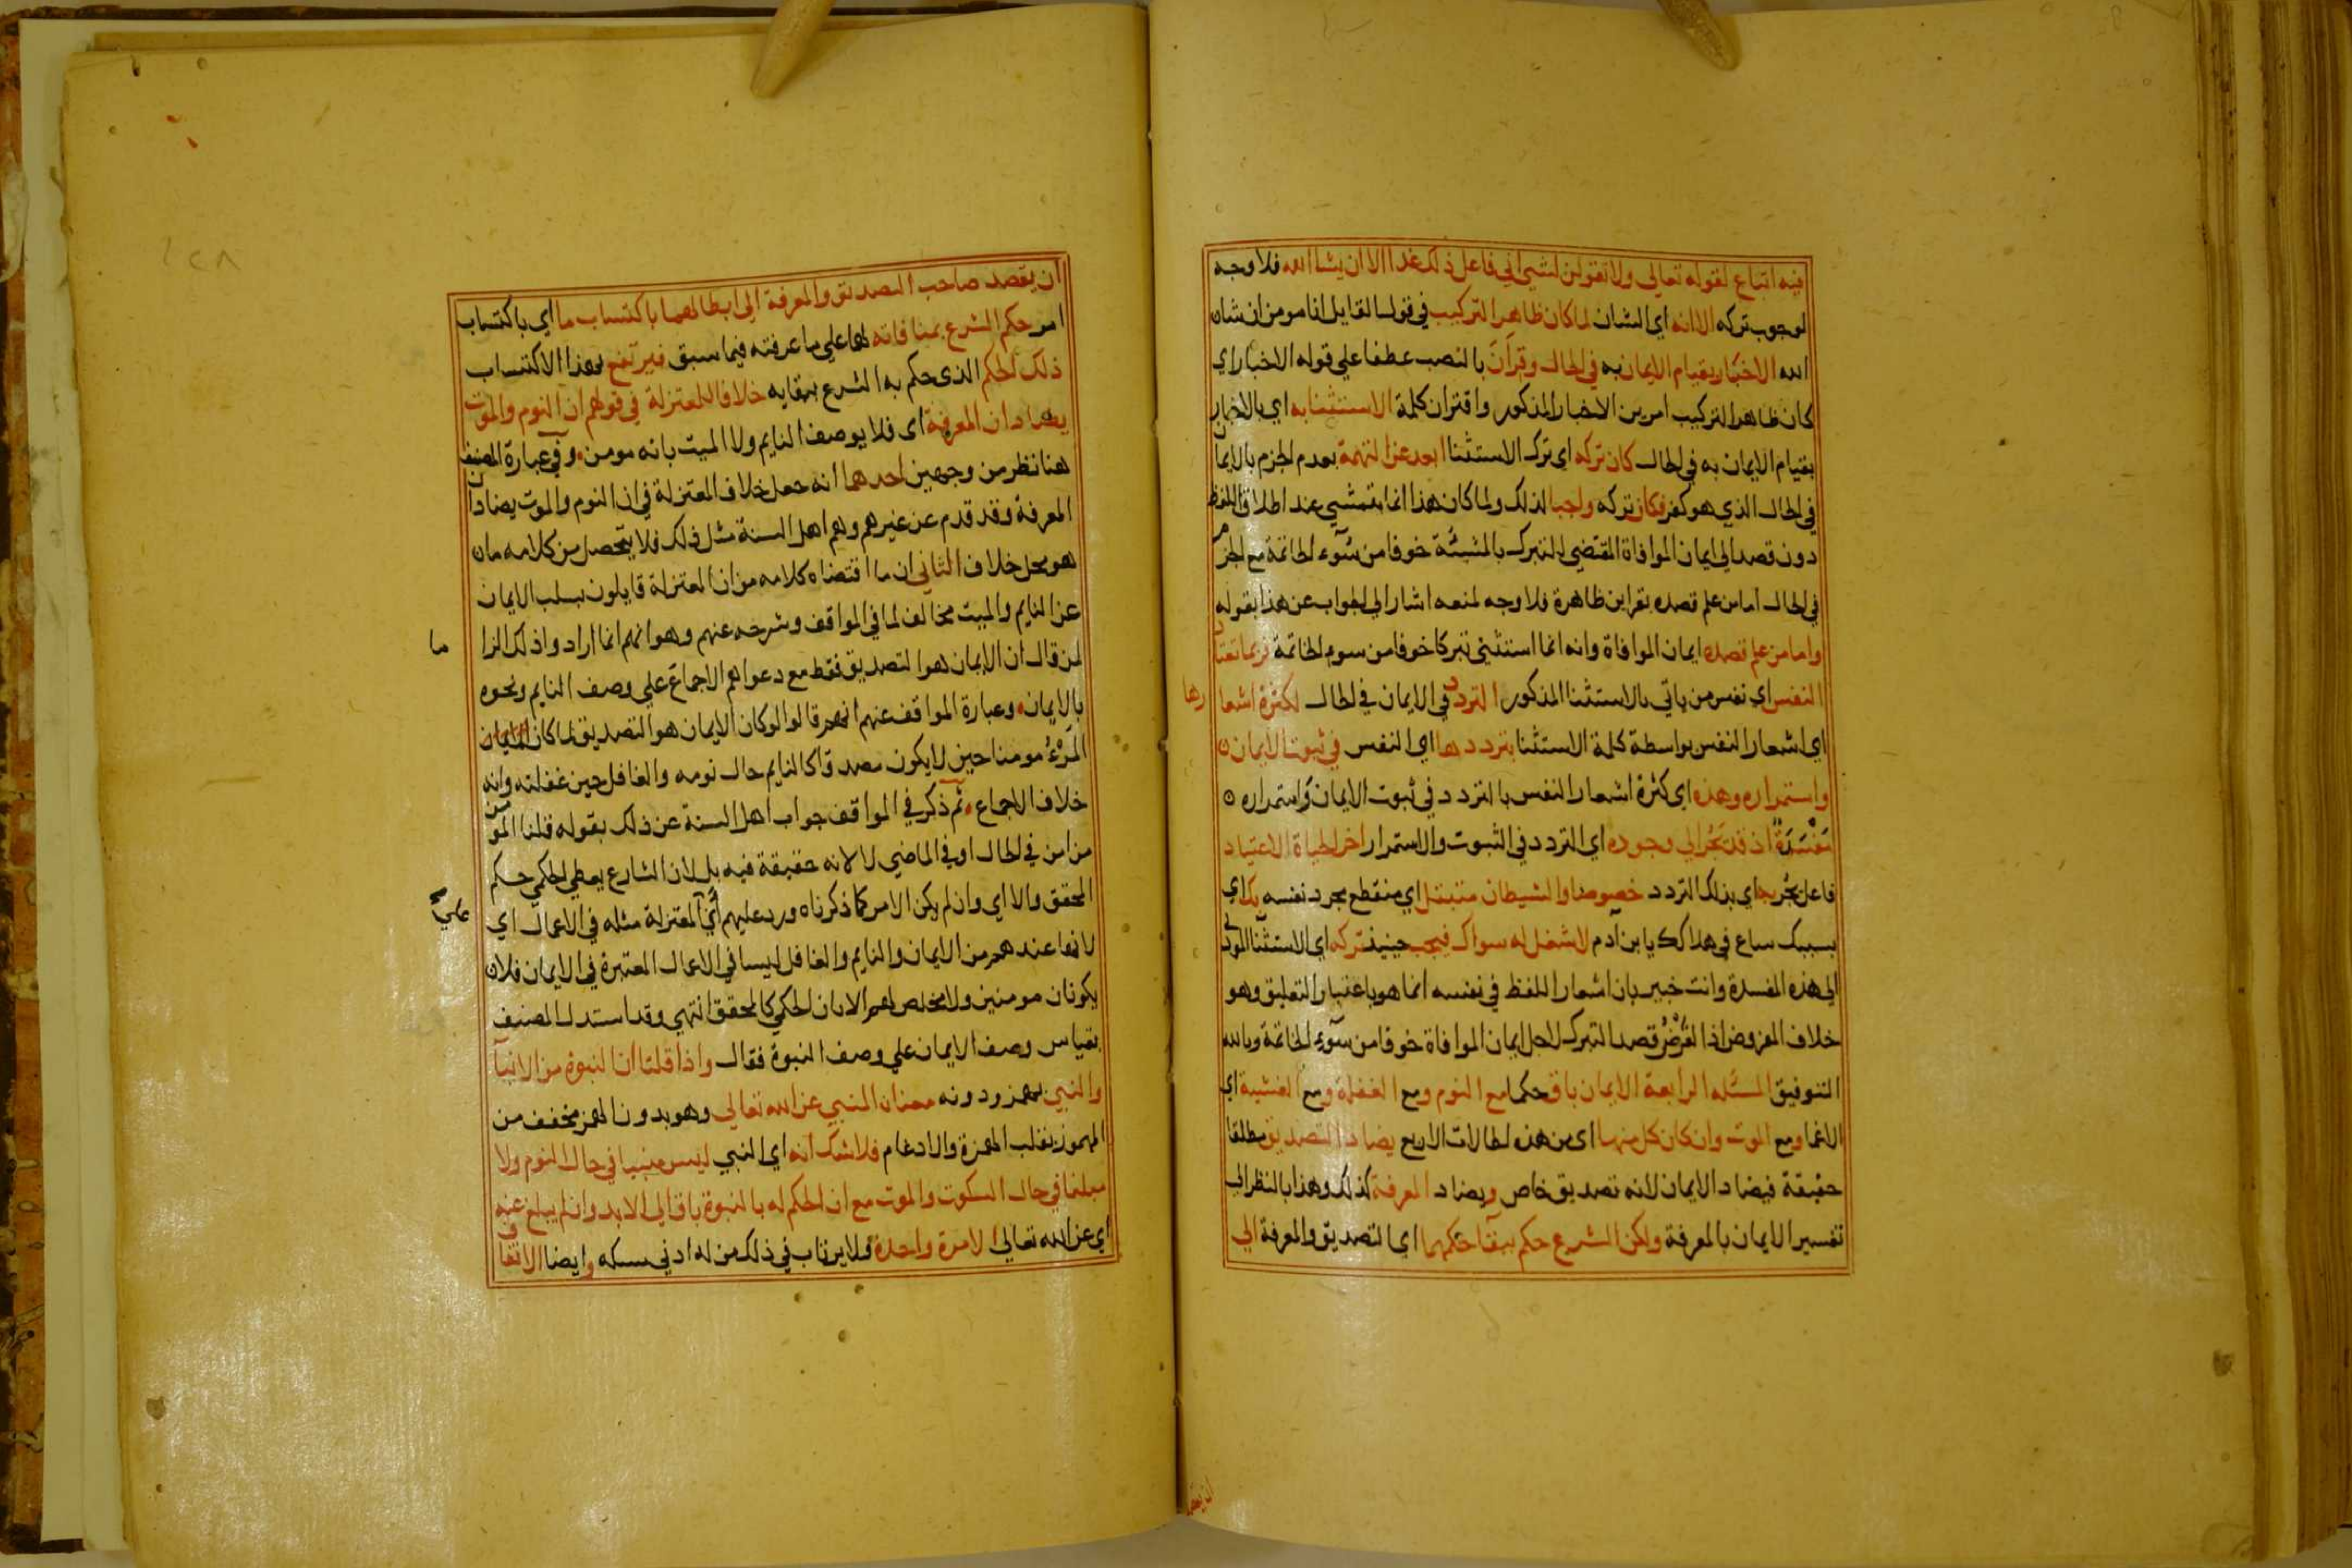 فيه اتباع لقوله تعالى ولا تقولن لشيء اني فاعل ذلك غدا الا ان يشا الله فلا وجه
لوجوب تركه الا انه اي الشان لما كان ظاهر التركيب في قول القايل انا مومن ان شاء
الله الاخبار بقيام الايمان به في الحال وقران بالنصب عطفا علي قوله الاخبار اي
كان ظاهر التركيب امرين الاخبار المذكور واقتران كلمة الاستثنا به اي بالاخبار
بقيام الايمان به في الحال كان تركه اي ترك الاستثنا ابعد عن التهمة بعدم الجزم بالايمان
في الحال الذي هو كفر فكان تركه واجبا لذلك ولما كان هذا انما يتمشي عند اطلاق اللفظ
دون قصد الي ايمان الموافاة المقتضي للتبرك بالمشيئة خوفا من سوء الخاتمة مع الجزم
في الحال اما من علم قصده بقراين ظاهرة فلا وجه لمنعه اشار الي الجواب عن هذا بقوله
واما من علم قصده ايمان الموافاة وانه انما استثني تبركا خوفا من سوء الخاتمة فربما تعتاد
النفس اي نفس من ياتي بالاستثنا المذكور التردد في الايمان في الحال لكثرة اشعا رها
اي اشعار النفس بواسطة كلمة الاستثنا بترددها اي النفس في ثبوت الايمان
واستمراره وهذه اي كثرة اشعار النفس بالتردد في ثبوت الايمان واستمراره
مفسدة اذ قد تجر الي وجوده اي التردد في الثبوت والاستمرار اخر الحياة الاعتياد
فاعل تجر به اي بذلك التردد خصوصا والشيطان متبتل اي منقطع مجرد نفسه بك اي
بسببك ساع في هلاكك يا بن آدم لا شغل له سواك فيجب حينيذ تركه اي الاستثنا المودي
الي هذه المفسدة وانت خبير بان اشعار اللفظ في نفسه انما هو باعتبار التعليق وهو
خلاف المفروض اذ الفرض قصد التبرك لاجل ايمان الموافاة خوفا من سوء الخاتمة وبالله
التوفيق المسئلة الرابعة الايمان باق حكما مع النوم ومع الغفلة ومع الغشية اي
الاغما ومع الموت وان كان كل منها اي من هذه الحالات الاربع يضاد التصديق مطلقا
حقيقة فيضاد الايمان لانه تصديق خاص ويضاد المعرفة كذلك وهذا بالنظر الي
تفسير الايمان بالمعرفة ولكن الشرع حكم ببقا حكمهما اي التصديق والمعرفة الي
ان يقصد
ان يقصد صاحب التصديق والمعرفة الي ابطالهما باكتساب ما اي باكتساب
امر حكم الشرع بمنافاته لهما علي ما عرفته فيما سبق فيرتفع بهذا الاكتساب
ذلك الحكم الذي حكم به الشرع ببقايه خلافا للمعتزلة في قولهم ان النوم والموت
يضادان المعرفة اي فلا يوصف النايم ولا الميت بانه مومن وفي عبارة المصنف
هنا نظر من وجهين احدهما انه جعل خلاف المعتزلة في ان النوم والموت يضادان
المعرفة وقد قدم عن غيرهم وهم اهل السنة مثل ذلك فلا يتحصل من كلامه مان
هو محل خلاف الثاني ان ما اقتضاه كلامه من ان المعتزلة قايلون بسلب الايمان
عن النايم والميت مخالف لما في المواقف وشرحه عنهم وهو انهم انما ارادوا ذلك الزا ما
لمن قال ان الايمان هو التصديق فقط مع دعواهم الاجماع علي وصف النايم ونحوه
بالايمان وعبارة المواقف عنهم انهم قالوا لو كان الايمان هو التصديق لما كان
المرء مومنا حين لا يكون مصدقا كالنايم حال نومه والغافل حين غفلته وانه
خلاف الاجماع ثم ذكر في المواقف جواب اهل السنة عن ذلك بقوله قلنا المومن
من امن في الحال او في الماضي لا لانه حقيقة فيه بل لان الشارع يعطي الحكمي حكم
المحقق والا اي وان لم يكن الامر كما ذكرناه ورد عليهم اي المعتزلة مثله في الاعمال اي
لانها عندهم من الايمان والنايم والغافل ليسا في الاعمال المعتبرة في الايمان فلا
يكونان مومنين ولا مخلص لهم الا بان الحكمي كالمحقق انتهي وقد استدل المصنف
بقياس وصف الايمان علي وصف النبوة فقال واذا قلنا ان النبوة من الانبا
والنبي بهمز ودونه معناه المنبي عن الله تعالى وهو بدون الهمز مخفف من
المهموز بقلب الهمزة والادغام فلا شك انه اي النبي ليس منبيا في حال النوم ولا
مبلغا في حال السكوت والموت مع ان الحكم له بالنبوة باق الي الابد وان لم يبلغ عنه
اي عن الله تعالى الا مرة واحدة فلا يرتاب في ذلك من له ادني مسكه وايضا الاتفاق